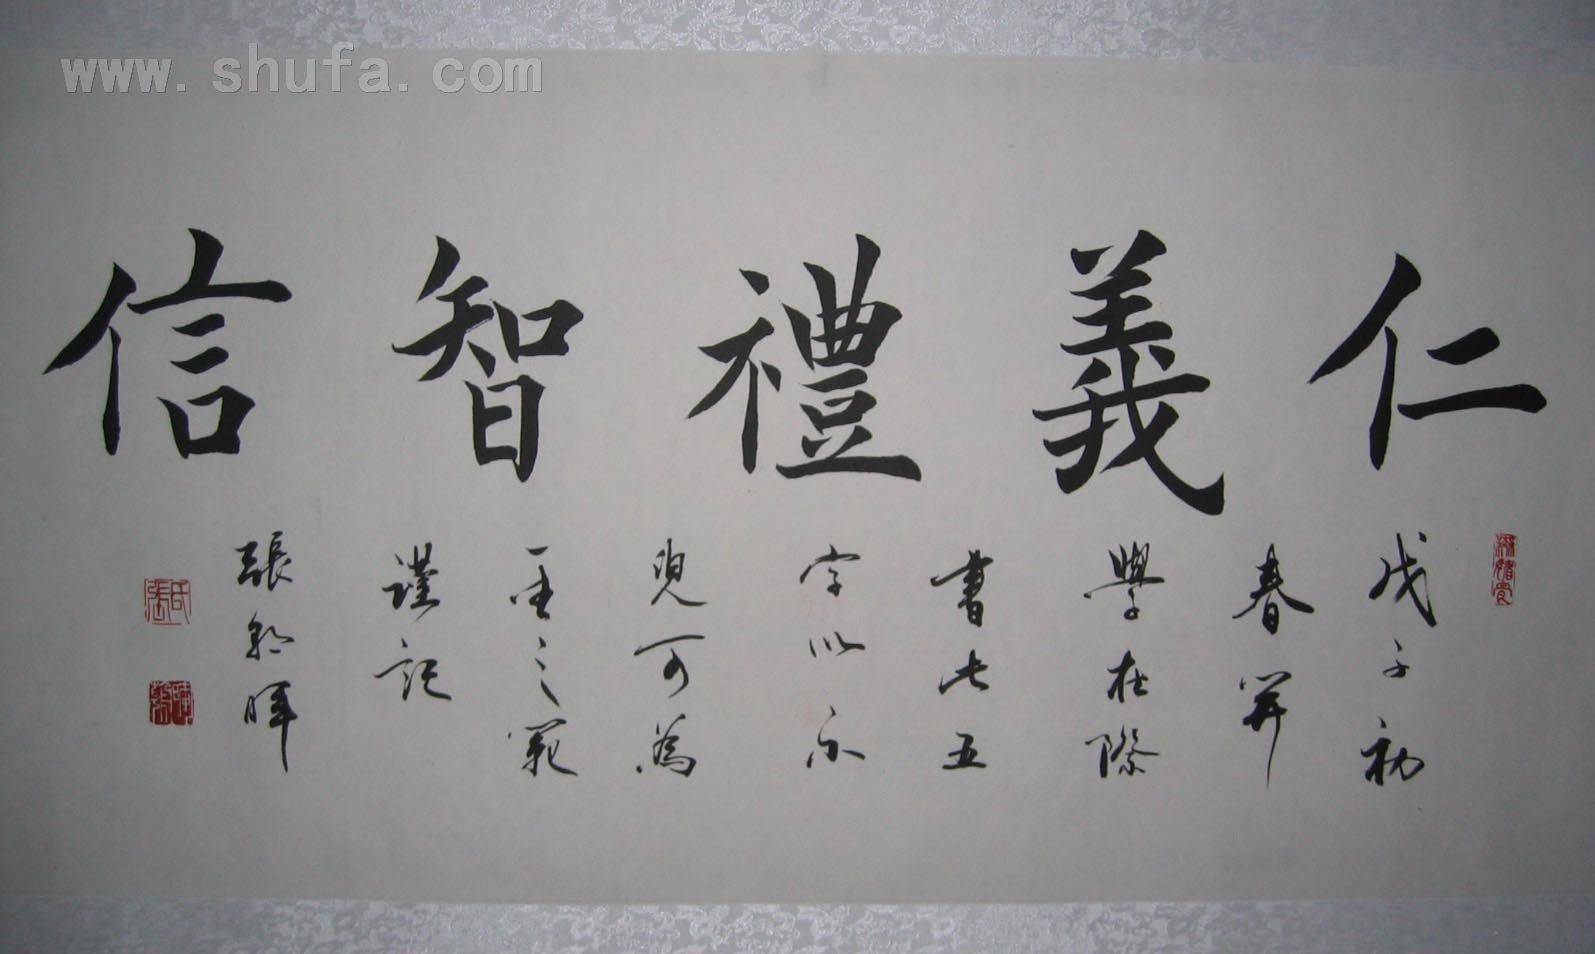 www.shufa.com
仁義禮智信
戊子初
春开
學在際
書此五
字以示
兒可為
一生之範
謹記
張
暉